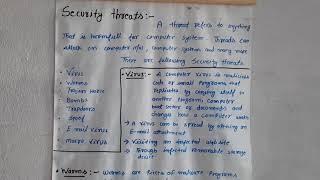 Security threats:-
A thread refers to anything
that is harmfull for computer system. Threads can
attack on computer n/w, computer system and many more
There are following Security threats.
- Virus
- Worms
- Trojan Horse
- Bombs
- Trapdoors
- Spoof
- E-mail virus
- Macro virus
Virus:- A computer virus is malicious
code or small programs that
replicates by copying itself to
another program, computer
boot sector or document and
change how a computer works
→ A virus can be spread by opening an
E-mail attachment
→ Visiting an infected web site
→ through infected removable storage
device.
Worms:- Worms are form of malware programs